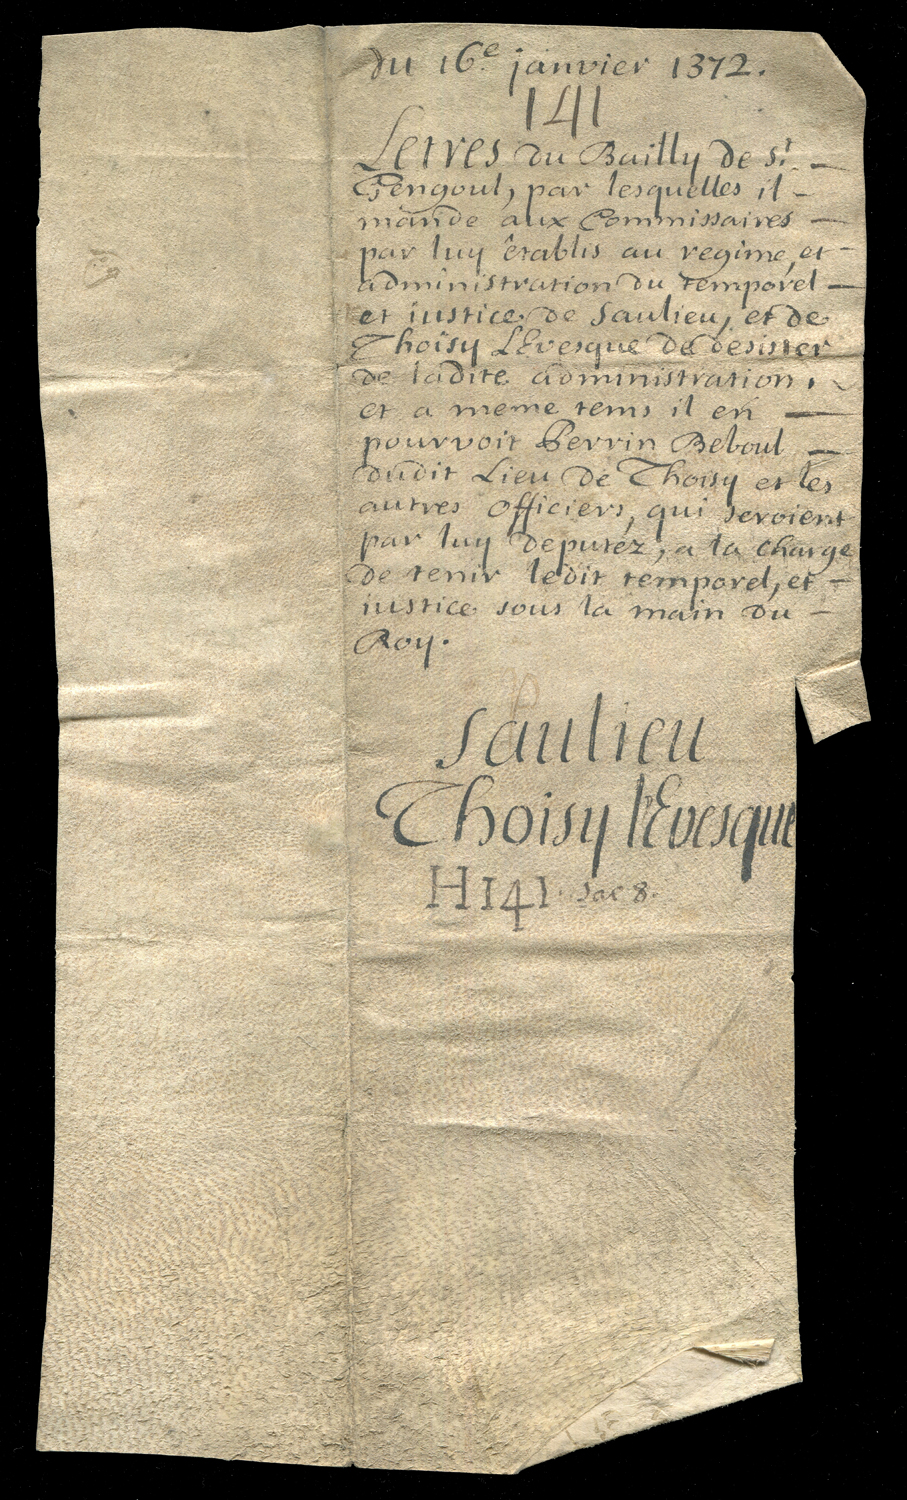 du 16.e janvier 1372.
141
Letres du Bailly de St. —
Gengoul, par lesquelles il –
mande aux Commissaires —
par luy êtablis au regime, et –
administration du temporel —
et iustice de Saulieu, et de
Thoïsy LEvesque de desister
de ladite administration,
et a meme tems il en —
pourvoit Perrin Beboul —
dudit Lieu de Thoisy et les
autres officiers, qui seroient
par luy deputéz, a la charge
de tenir ledit temporel, et –
iustice sous la main du –
Roy.
Saulieu
Thoisy l'Evesque
H141. Sac 8.